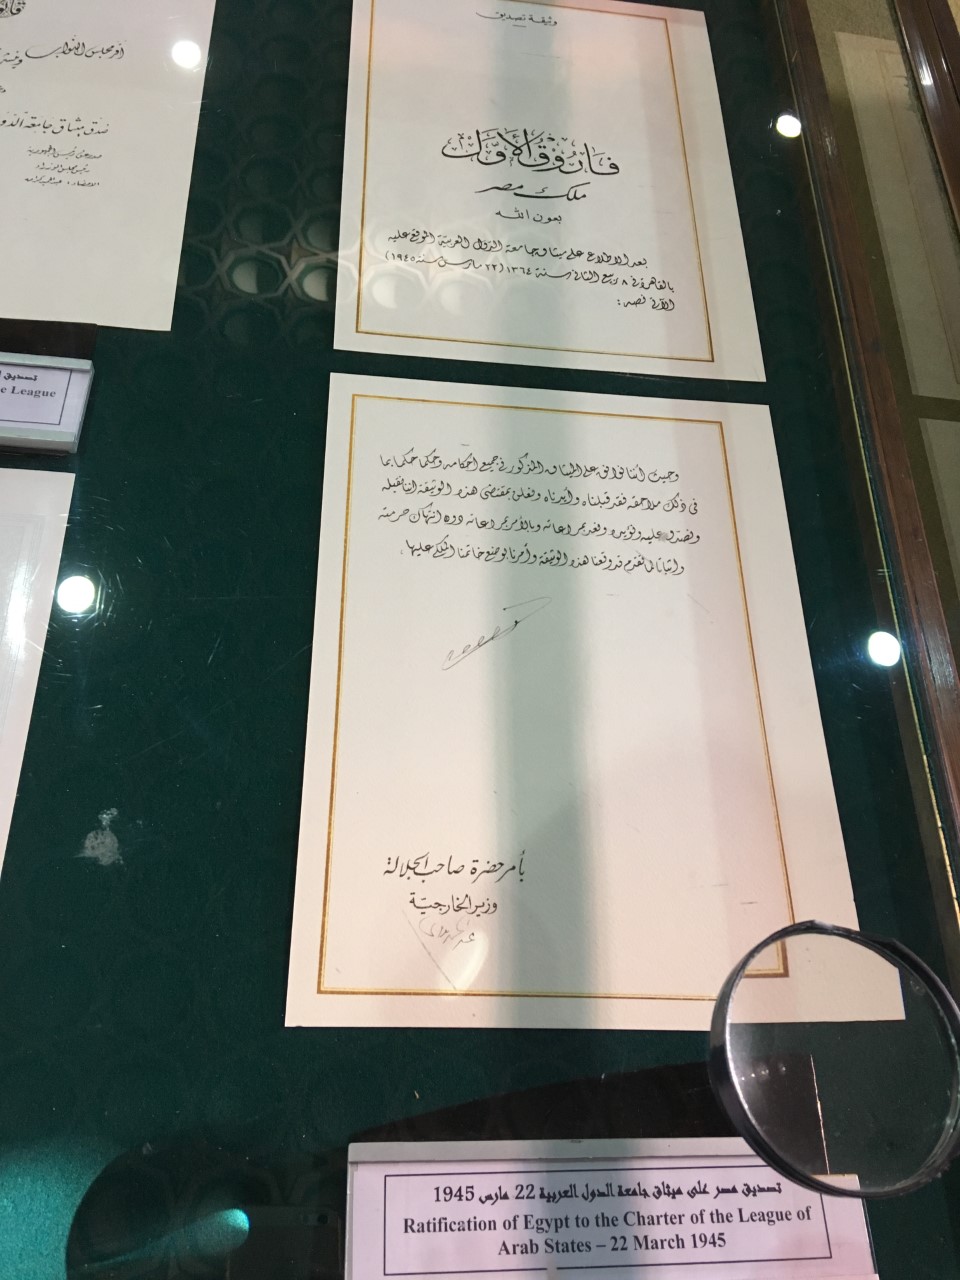 أو مجلس النواب
صدق ميثاق جامعة الدو
تصديق
e League
وثيقة تصديق
فاروق الأول
ملك مصر
بعون الله
بعد الاطلاع على ميثاق جامعة الدول العربية الموقع عليه
بالقاهرة في ٨ ربيع الثاني سنة ١٣٦٤ (٢٢ مارس سنة ١٩٤٥)
الآتي نصه :
وحيث أننا نوافق على الميثاق المذكور في جميع أحكامه وحكما حكما بما
في ذلك ملاحقه فقد قبلناه وأيدناه ونعلن بمقتضى هذه الوثيقة اننا نقبله
ونصدق عليه ونؤيده ونعد بمراعاته وبالأمر بمراعاته دون انتهاك حرمته
وإثباتا لما تقدم قد وقعنا هذه الوثيقة وأمرنا بوضع خاتمنا الملكي عليها .
بأمر حضرة صاحب الجلالة
وزير الخارجية
تصديق مصر على ميثاق جامعة الدول العربية 22 مارس 1945
Ratification of Egypt to the Charter of the League of
Arab States – 22 March 1945